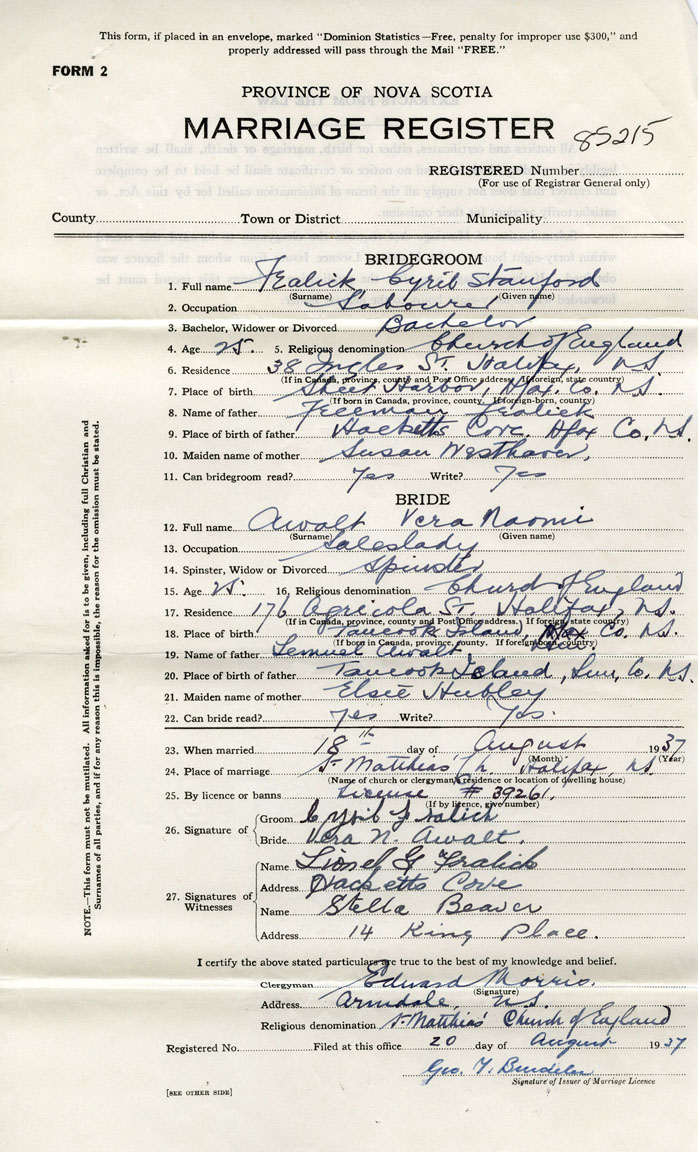 This form, if placed in an envelope, marked "Dominion Statistics—Free, penalty for improper use $300," and
properly addressed will pass through the Mail "FREE."
FORM 2
PROVINCE OF NOVA SCOTIA
MARRIAGE REGISTER 85215
REGISTERED Number
(For use of Registrar General only)
County Town or District Municipality
BRIDEGROOM
1. Full name Fralick Cyril Stanford
(Surname) (Given name)
2. Occupation Labourer
3. Bachelor, Widower or Divorced Bachelor
4. Age 25. 5. Religious denomination Church of England
6. Residence 38 Ingles St. Halifax, N.S
(If in Canada, province, county and Post Office address. If foreign, state country)
7. Place of birth Sheet Harbor, Hfax. Co. N.S.
(If born in Canada, province, county. If foreign-born, country)
8. Name of father Freeman Fralick
9. Place of birth of father Hacketts Cove. Hfax Co. N.S.
10. Maiden name of mother Susan Westhaver,
11. Can bridegroom read? Yes Write? Yes
BRIDE
12. Full name Awalt Vera Naomi
(Surname) (Given name)
13. Occupation Saleslady
14. Spinster, Widow or Divorced Spinster
15. Age 25. 16. Religious denomination Church of England
17. Residence 176 Agricola St. Halifax, N.S.
(If in Canada, province, county and Post Office address. If foreign, state country)
18. Place of birth Tancook Island, Hfax Co. N.S.
(If born in Canada, province, county. If foreign-born, country)
19. Name of father Lemuel Awalt
20. Place of birth of father Tancook Island, Lun. Co. N.S.
21. Maiden name of mother Elsie Hubley
22. Can bride read? Yes Write? Yes.
23. When married 18th day of August 1937
(Month) (Year)
24. Place of marriage St Matthias' Ch. Halifax, N.S.
(Name of church or clergyman's residence or location of dwelling house)
25. By licence or banns License # 39261.
(If by licence, give number)
26. Signature of
Groom Cyril Fralick
Bride Vera N. Awalt.
27. Signatures of Witnesses
Name Lionel G Fralick
Address Hacketts Cove
Name Stella Beaver
Address 14 King Place.
I certify the above stated particulars are true to the best of my knowledge and belief.
Clergyman Edward Morris.
(Signature)
Address Armdale, N.S.
Religious denomination St. Matthias' Church of England
Registered No. Filed at this office 20 day of August 1937
Geo. T.
Signature of Issuer of Marriage Licence
[SEE OTHER SIDE]
NOTE.—This form must not be mutilated. All information asked for is to be given, including full Christian and
Surnames of all parties, and if for any reason this is impossible, the reason for the omission must be stated.